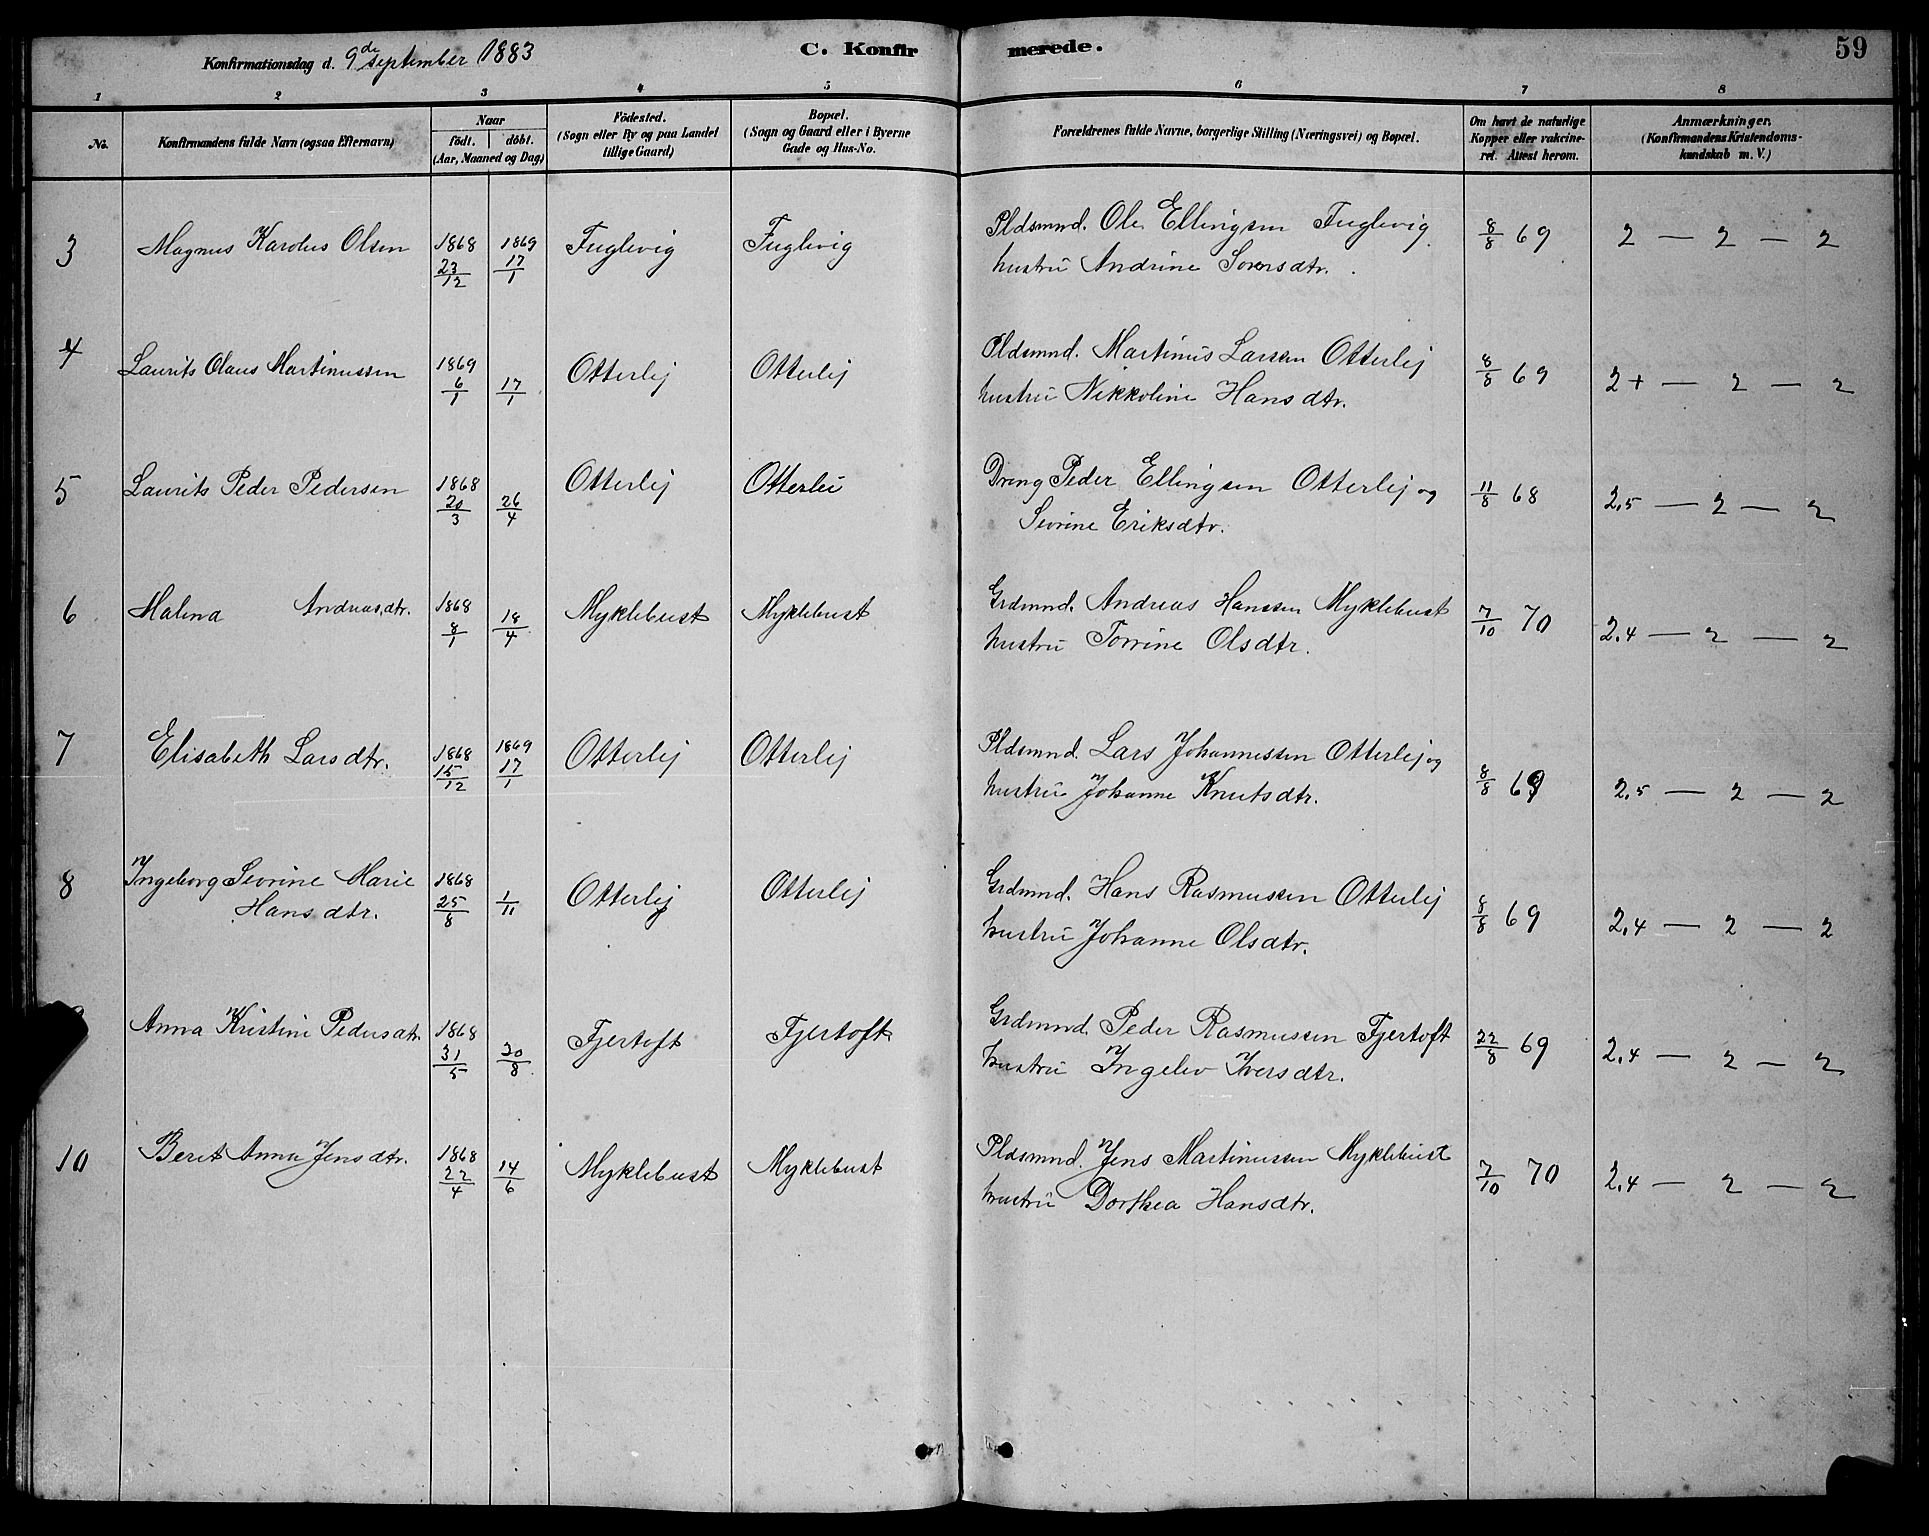 Konfirmationsdag d. 9de september 1883
C. Konfirmerede.
59
1 2 3 4 5 6 7 8
No.
Konfirmandens fulde Navn (ogsaa Efternavn)
Naar
födt. döbt.
(Aar, Maaned og Dag)
Födested.
(Sogn eller By og paa Landet
tillige Gaard)
Bopæl.
(Sogn og Gaard eller i Byerne
Gade og Hus-No.
Forældrenes fulde Navne, borgerlige Stilling (Næringsvei) og Bopæl.
Om havt de naturlige
Kopper eller vakcine-
ret. Attest herom.
Anmærkninger.
(Konfirmandens Kristendoms-
kundskab m. V.)
3 Magnus Karolus Olsen 1868 23/12 1869 17/1 Fuglevig Fuglevig Pldsmnd. Ole Ellingsen Fuglevig 8/8 69 2 — 2 — 2
hustru Andrine Sorensdtr.
4 Laurits Olaus Martinussen 1869 6/1 17/1 Otterlej Otterlej Pldsmnd. Martinus Larsen Otterlej 8/8 69 2+ — 2 — 2
hustru Nikkoline Hansdtr.
5 Laurits Peder Pedersen 1868 20/3 26/4 Otterlej Otterlei Dreng Peder Ellingsen Otterlej og 11/8 68 2,5 — 2 — 2
Sevrine Eriksdtr.
6 Malena Andreasdtr. 1868 8/1 18/4 Myklebust Myklebust Grdmnd. Andreas Hanssen Myklebust 7/10 70 2,4 — 2 — 2
hustru Torrine Olsdtr.
7 Elisabeth Larsdtr. 1868 15/12 1869 17/1 Otterlej Otterlej Pldsmnd. Lars Johannessen Otterlej og 8/8 69 2,5 — 2 — 2
hustru Johanne Knutsdtr.
8 Ingeborg Sevrine Marie 1868 25/8 1/11 Otterlej Otterlej Grdmnd. Hans Rasmussen Otterlej 8/8 69 2,4 — 2 — 2
Hansdtr. hustru Johanne Olsdtr.
Anna Kristine Pedersdtr. 1868 31/5 30/8 Fjertoft Fjertoft Grdmnd. Peder Rasmussen Fjertoft 22/8 69 2,4 — 2 — 2
hustru Ingelev Iversdtr.
10 Berit Anna Jensdtr. 1868 22/4 14/6 Myklebust Myklebust Pldsmnd. Jens Martinussen Myklebust 7/10 70 2,4 — 2 — 2
hustru Dorthea Hansdtr.